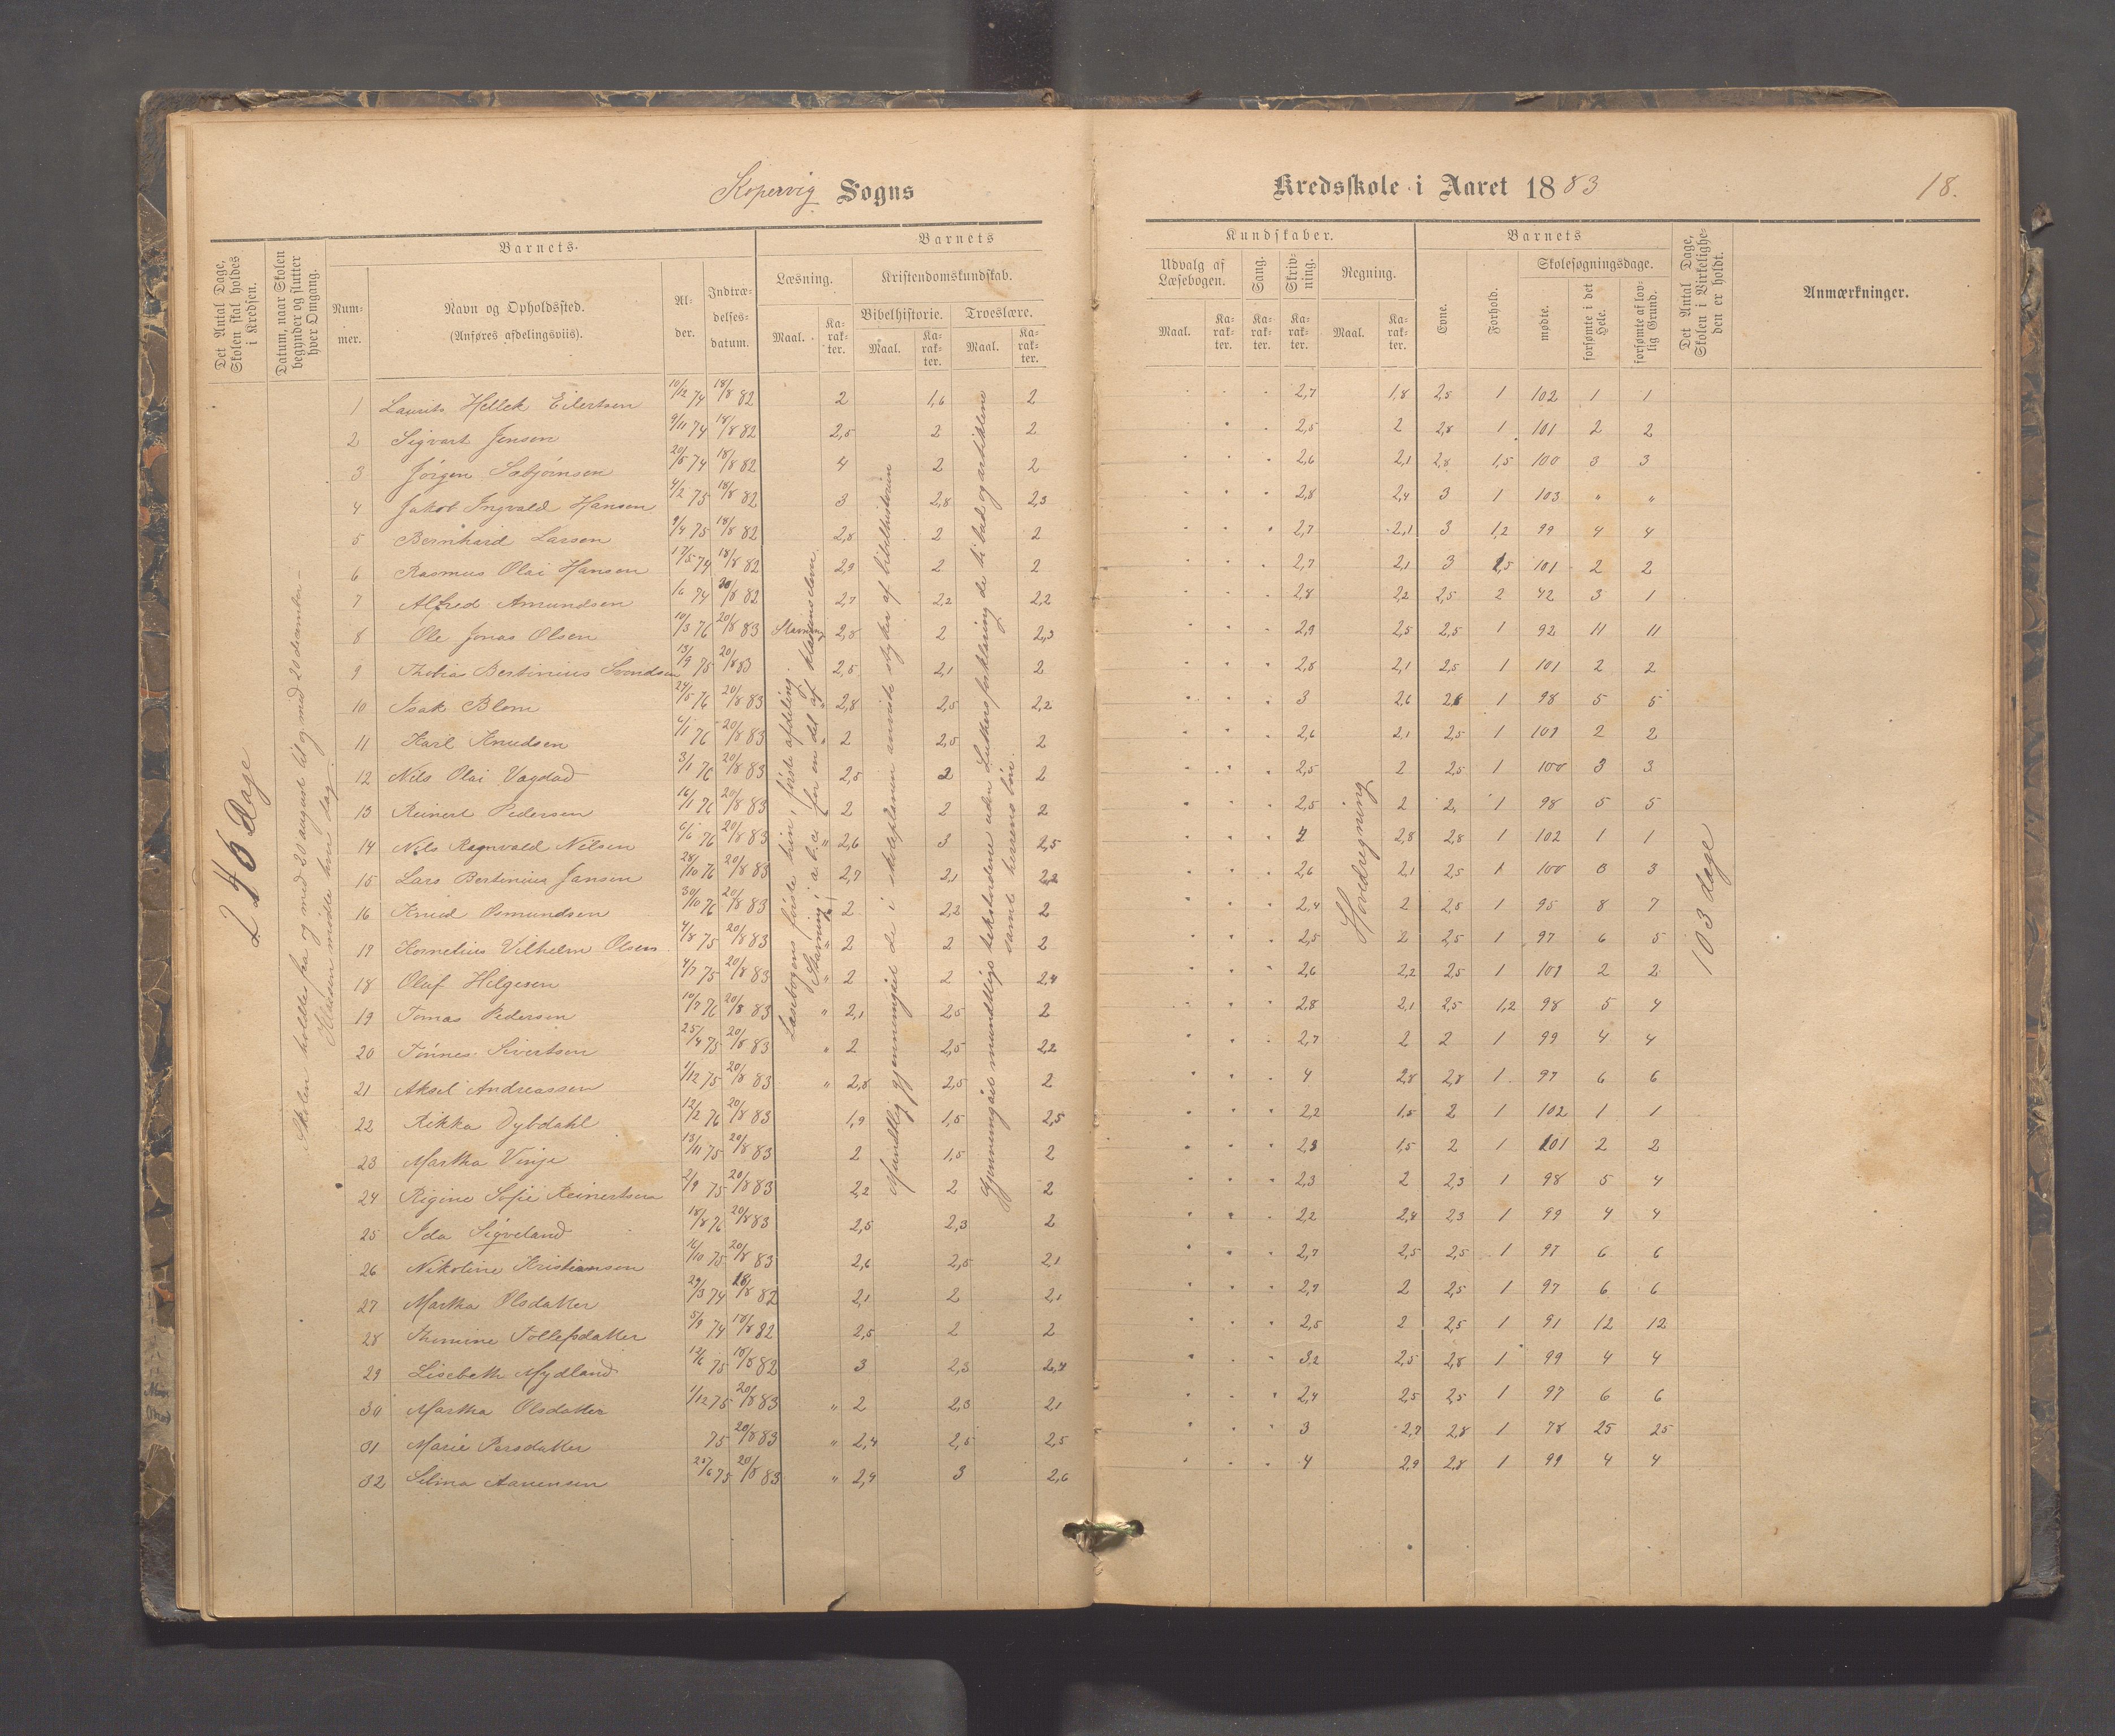 Kopervig Sogns
Kredsskole i Aaret 1883
18.
Det Antal Dage, Skolen skal holdes i Kredsen.
Datum, naar Skolen begynder og slutter hver Omgang.
Barnets.
Nummer.
Navn og Opholdssted.
(Anføres afdelingsviis).
Alder.
Indtrædelsesdatum.
Barnets
Læsning.
Maal.
Karakter.
Kristendomskundskab.
Bibelhistorie.
Maal.
Karakter.
Troeslære.
Maal.
Karakter.
Kundskaber.
Udvalg af Læsebogen.
Maal.
Karakter.
Sang.
Karakter.
Skrivning.
Karakter.
Regning.
Maal.
Karakter.
Barnets
Evne.
Forhold.
Skolesøgningsdage.
mødte.
forsømte i det Hele.
forsømte af lovlig Grund.
Det Antal Dage, Skolen i Virkeligheden er holdt.
Anmærkninger.
246 Dage
Skolen holdtes fra og med 20 august til og med 20 december –
Klassen mødte hver dag.
Læsebogens første trin, første afdeling.
Stavning i a.b.c. for en del af klassens elever.
Mundtlig gjennemgået de i skoleplanen anviste stykker af bibelhistorien
Gjennemgået mundtligt tekstordene uden Luthers forklaring de ti bud og artiklene
samt herrens bøn.
Hovedregning
103 dage
1 Laurits Hellek Eilertsen 10/12 74 18/8 82 2 1,6 2 2,7 1,8 2,5 1 102 1 1
2 Sigvart Jensen 9/11 74 18/8 82 2,5 2 2 2,5 2 2,8 1 101 2 2
3 Jörgen Sæbjörnsen 20/5 74 18/8 82 4 2 2 2,6 2,1 2,8 1,5 100 3 3
4 Jakob Ingvald Hansen 4/2 75 18/8 82 3 2,8 2,3 2,8 2,4 3 1 103 " "
5 Bernhard Larsen 9/4 75 18/8 82 2,8 2 2 2,7 2,1 3 1,2 99 4 4
6 Rasmus Olai Hansen 17/5 74 18/8 82 2,9 2 2 2,7 2,1 3 1,5 101 2 2
7 Alfred Amundsen 1/6 74 20/8 82 2,7 2,2 2,2 2,8 2,2 2,5 2 42 3 1
8 Ole Jonas Olsen 10/3 76 20/8 83 Stavning 2,8 2 2,3 2,9 2,5 2,5 1 92 11 11
9 Thobias Bertinius Svendsen 13/9 75 20/8 83 2,5 2,1 2 2,8 2,1 2,5 1 101 2 2
10 Isak Blom 24/5 76 20/8 83 2,8 2,5 2,2 3 2,6 2,8 1 98 5 5
11 Karl Knudsen 6/1 76 20/8 83 2 2,5 2 2,6 2,1 2,5 1 101 2 2
12 Nils Olai Vagdad 3/1 76 20/8 83 2,5 2 2 2,5 2 2,5 1 100 3 3
13 Reinert Pedersen 16/1 76 20/8 83 2 2 2 2,5 2 2, 1 98 5 5
14 Nils Ragnvald Nilsen 6/6 76 20/8 83 " 2,6 3 2,5 4 2,8 2,8 1 102 1 1
15 Lars Bertinius Jansen 28/10 76 20/8 83 2,7 2,1 2,2 2,6 2,1 2,5 1 100 3 3
16 Knud Osmundsen 30/10 76 20/8 83 2 2,2 2 2,4 2 2,5 1 95 8 7
17 Kornelius Vilhelm Olsen 4/8 75 20/8 83 " 2 2 2 2,5 2 2,5 1 97 6 5
18 Oluf Helgesen 4/7 75 20/8 83 " 2 2 2,4 2,6 2,2 2,5 1 101 2 2
19 Tomas Pedersen 10/7 76 20/8 83 " 2,1 2,5 2 2,8 2,1 2,5 1,2 98 5 4
20 Tönnes Sivertsen 25/4 75 20/8 83 " 2 2,5 2,2 2,7 2 2 1 99 4 4
21 Aksel Andreassen 1/12 75 20/8 83 " 2,8 2,5 2 4 2,8 2,8 1 97 6 6
22 Rikka Dybdahl 12/2 76 20/8 83 1,9 1,5 2,5 2,2 1,5 2 1 102 1 1
23 Martha Vinje 13/11 75 20/8 83 2 1,5 2 2,3 1,5 2 1 101 2 2
24 Rigine Sofie Reinertsen 2/9 75 20/8 83 2,2 2 2 2,3 2 2,3 1 98 5 4
25 Ida Sigveland 18/8 76 20/8 83 2,5 2,3 2 2,2 2,4 2,3 1 99 4 4
26 Nikoline Kristiansen 16/10 75 20/8 83 2,6 2,5 2,1 2,7 2,5 2,5 1 97 6 6
27 Martha Olsdatter 29/3 74 18/8 82 2,1 2 2,1 2,7 2 2,5 1 97 6 6
28 Thomine Tollefsdatter 5/9 74 18/8 82 2,5 2 2 2,5 2 2,5 1 91 12 12
29 Lisebeth Mydland 12/6 75 18/8 82 3 2,3 2,4 3,2 2,5 2,8 1 99 4 4
30 Martha Olsdatter 1/12 75 20/8 83 " 2 2,3 2,1 2,4 2,5 2,5 1 97 6 6
31 Marie Persdatter 75 20/8 83 " 2,4 2,5 2,5 3 2,7 2,8 1 78 25 25
32 Selma Aanensen 25/6 75 20/8 83 " 2,4 3 2,6 4 2,9 2,8 1 99 4 4